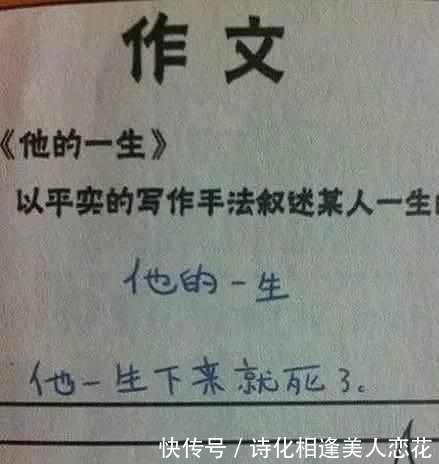 作文
《他的一生》
以平实的写作手法叙述某人一生
他的一生
他一生下来就死了。
快传号/诗化相逢美人恋花